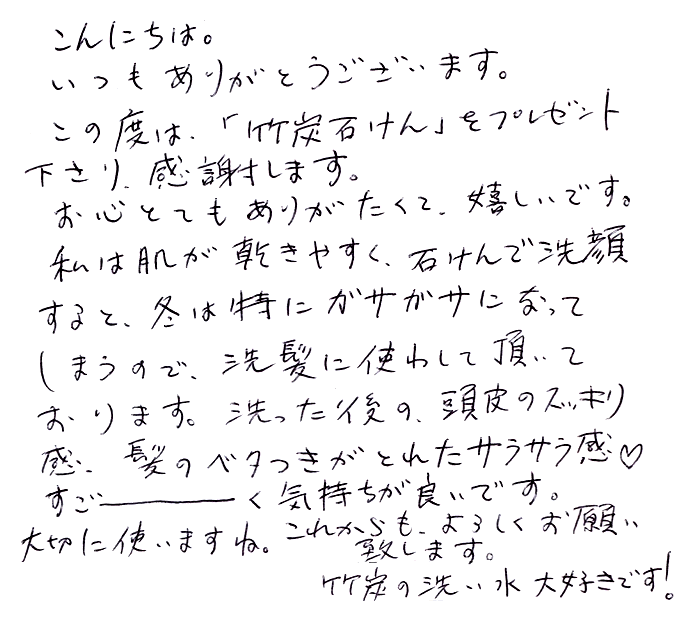 こんにちは。
いつもありがとうございます。
この度は、「竹炭石けん」をプレゼント
下さり、感謝します。
お心とてもありがたくて、嬉しいです。
私は肌が乾きやすく、石けんで洗顔
すると、冬は特にガサガサになって
しまうので、洗髪に使わして頂いて
おります。洗った後の、頭皮のスッキリ
感、髪のベタつきがとれたサラサラ感♡
すご――――く気持ちが良いです。
大切に使いますね。これからも、よろしくお願い
致します。
竹炭の洗い水 大好きです!